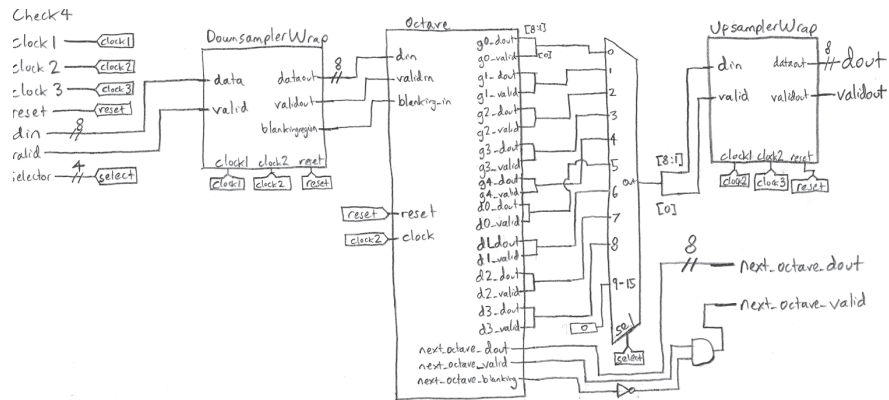 Check4
clock 1
clock1
clock 2
clock2
clock 3
clock3
reset
reset
din
8
valid
selector
4
select
DownsamplerWrap
data
valid
dataout
validout
blankingregion
clock1
clock2
reset
clock1
clock2
reset
8
Octave
din
validin
blanking_in
reset
reset
clock2
clock
g0_dout
g0_valid
g1_dout
g1_valid
g2_dout
g2_valid
g3_dout
g3_valid
g4_dout
g4_valid
d0_dout
d0_valid
d1_dout
d1_valid
d2_dout
d2_valid
d3_dout
d3_valid
next_octave_dout
next_octave_valid
next_octave_blanking
[8:1]
[0]
0
1
2
3
4
5
6
7
8
9-15
out
0
sel
select
[8:1]
[0]
UpsamplerWrap
din
valid
dataout
validout
clock1
clock2
reset
clock2
clock3
reset
8
dout
validout
8
next_octave_dout
next_octave_valid